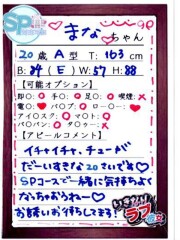 SP
まなちゃん
20歳 A型 T:163cm
B:84(E) W:57 H:88
【可能オプション】
即○:○ 手○:○ 足○:○ 喫煙:×
電○:♡ パ○プ:○ ロー○ー:♡
アイ○スク:○ マ○ト:○
パ○ン○:○
【アピールコメント】
イチャイチャ、チューが
だーいすきな20さいです♡
SPコースで一緒に気持ちよく
なっちゃおうねー♡
お誘いお待ちしてます!
いきなり
ラブ彼女